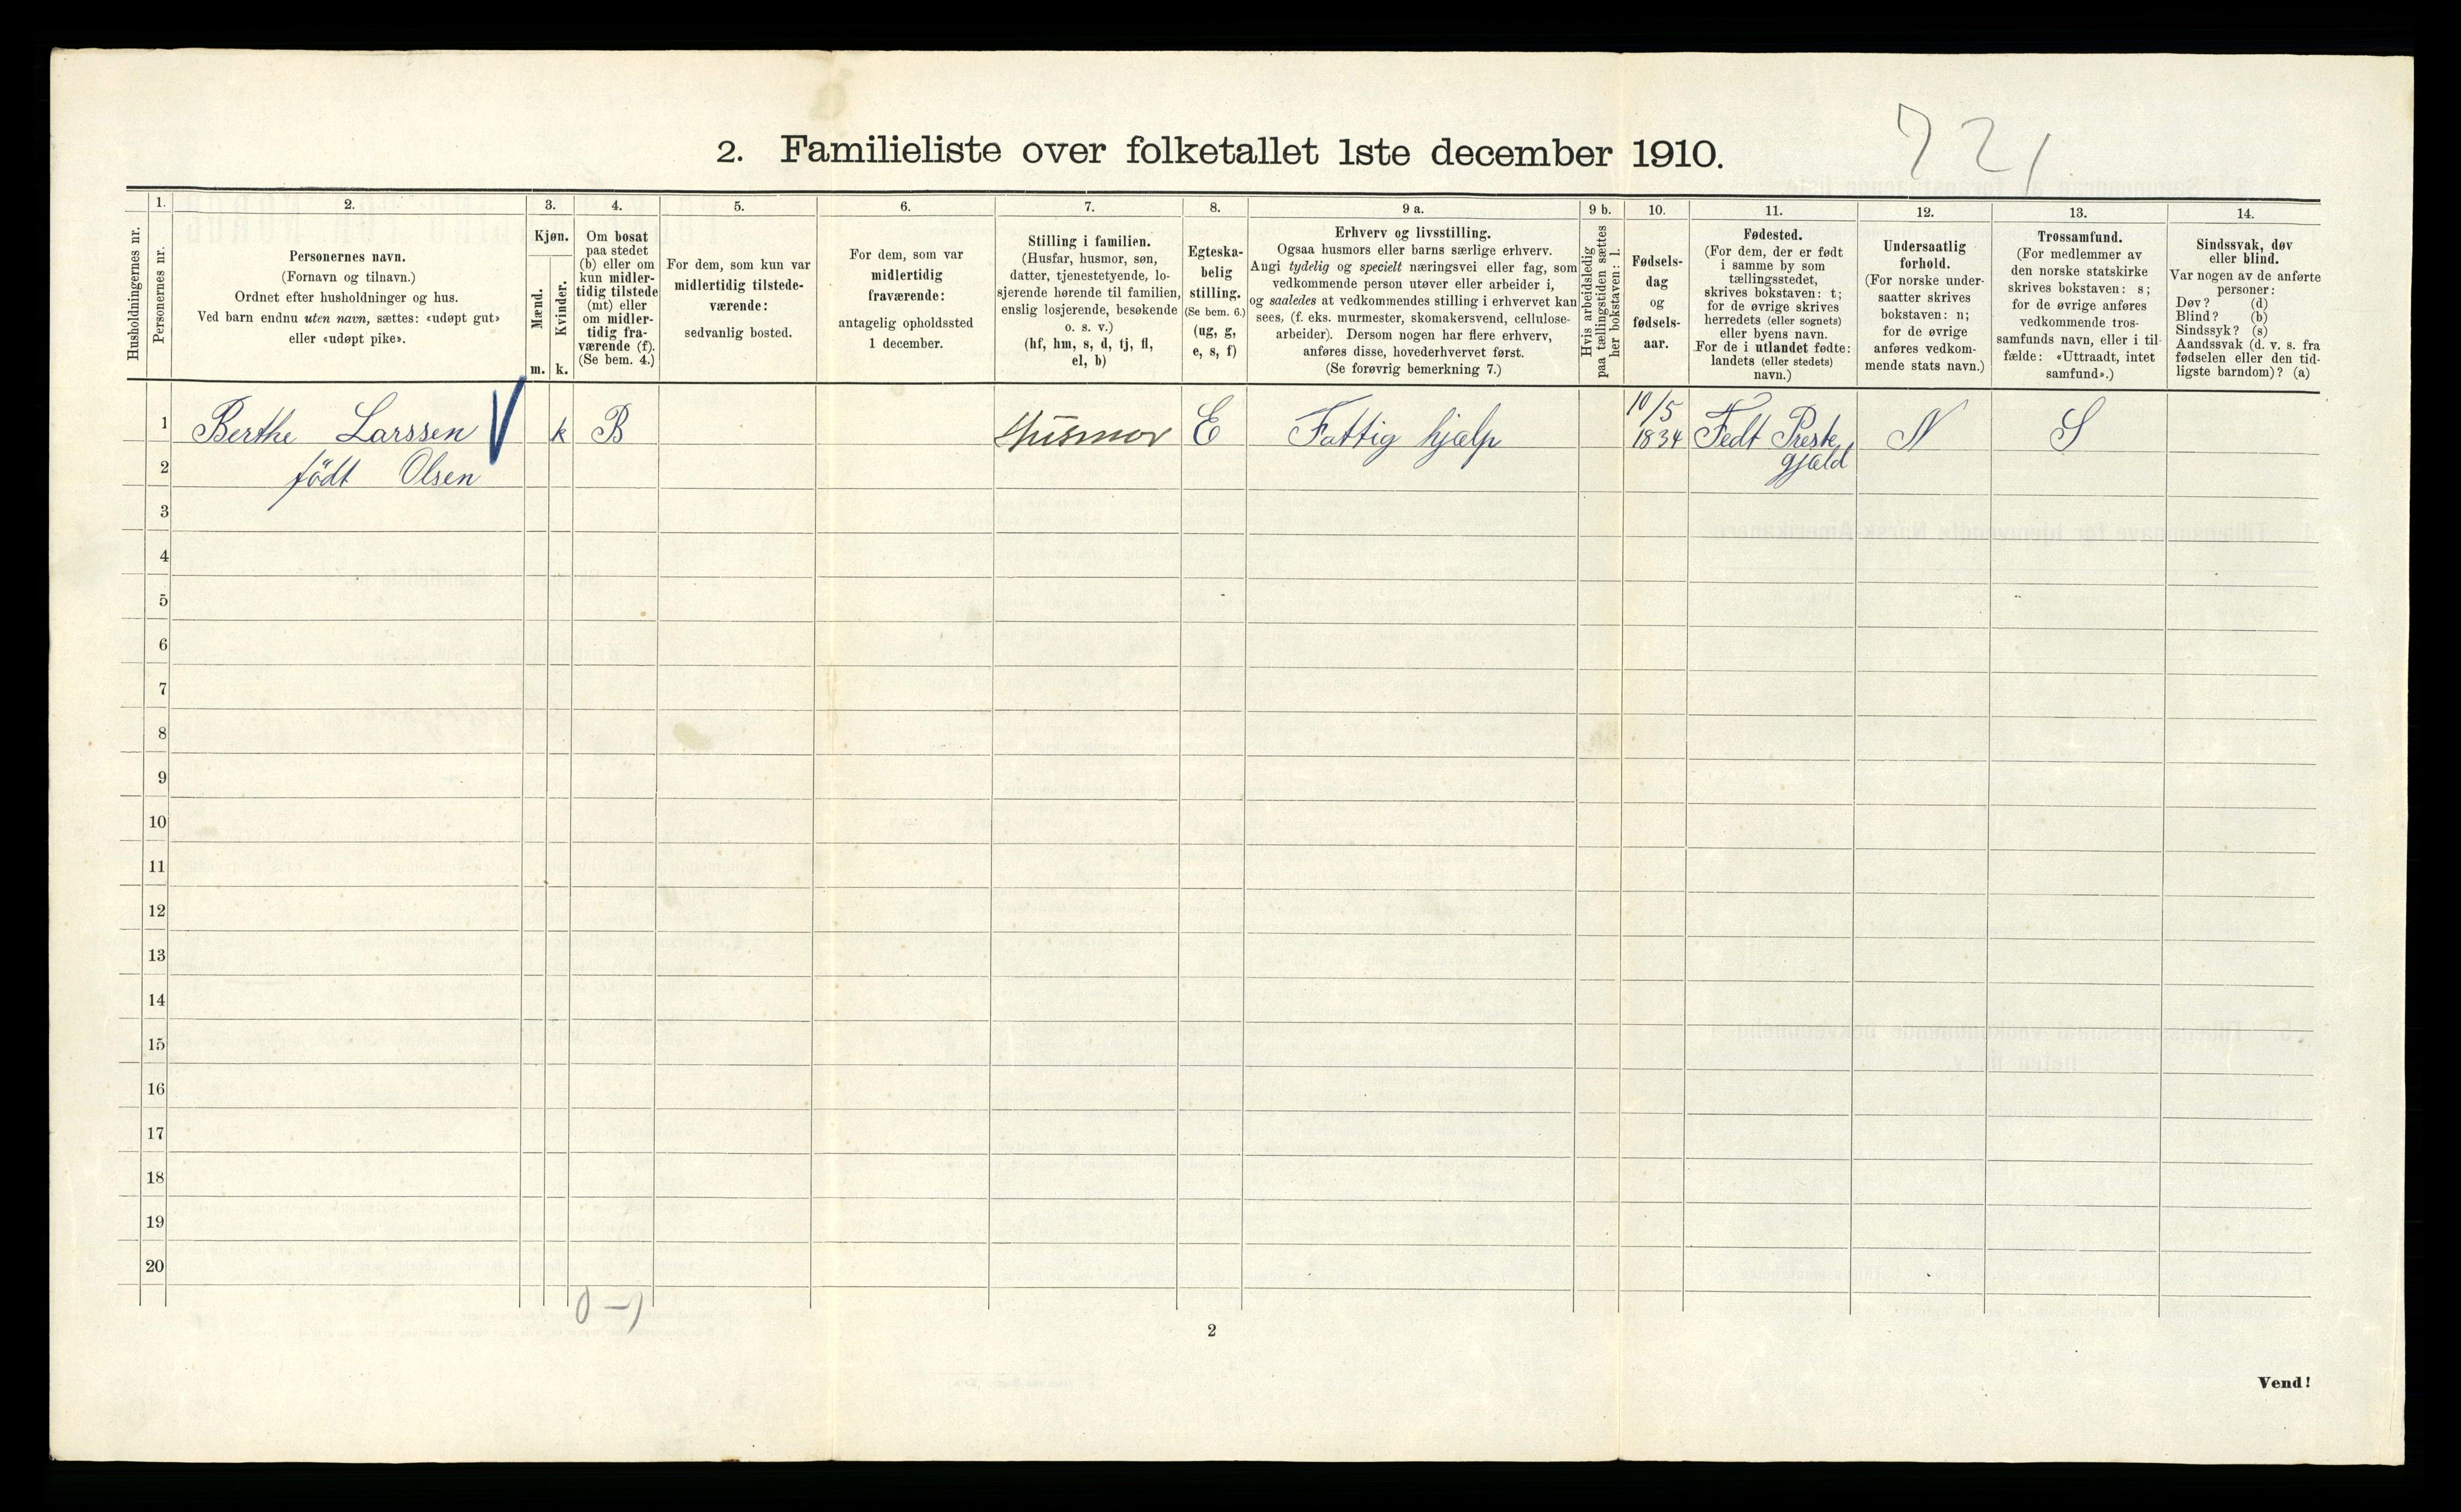 721
2. Familieliste over folketallet 1ste december 1910.
Husholdningernes nr.
1.
Personernes nr.
2.
Personernes navn.
(Fornavn og tilnavn.)
Ordnet efter husholdninger og hus.
Ved barn endnu uten navn, sættes: «udøpt gut»
eller «udøpt pike».
3.
Kjøn.
Mænd.
Kvinder.
m. k.
4.
Om bosat
paa stedet
(b) eller om
kun midler-
tidig tilstede
(mt) eller
om midler-
tidig fra-
værende (f).
(Se bem. 4.)
5.
For dem, som kun var
midlertidig tilstede-
værende:
sedvanlig bosted.
6.
For dem, som var
midlertidig
fraværende:
antagelig opholdssted
1 december.
7.
Stilling i familien.
(Husfar, husmor, søn,
datter, tjenestetyende, lo-
sjerende hørende til familien,
enslig losjerende, besøkende
o. s. v.)
(hf, hm, s, d, tj, fl,
el, b)
8.
Egteska-
belig
stilling.
(Se bem. 6.)
(ug, g,
e, s, f)
9 a.
Erhverv og livsstilling.
Ogsaa husmors eller barns særlige erhverv.
Angi tydelig og specielt næringsvei eller fag, som
vedkommende person utøver eller arbeider i,
og saaledes at vedkommendes stilling i erhvervet kan
sees, (f. eks. murmester, skomakersvend, cellulose-
arbeider). Dersom nogen har flere erhverv,
anføres disse, hovederhvervet først.
(Se forøvrig bemerkning 7.)
9 b.
Hvis arbeidsledig
paa tællingstiden sættes
her bokstaven: l.
10.
Fødsels-
dag
og
fødsels-
aar.
11.
Fødested.
(For dem, der er født
i samme by som
tællingsstedet,
skrives bokstaven: t;
for de øvrige skrives
herredets (eller sognets)
eller byens navn.
For de i utlandet fødte:
landets (eller stedets)
navn.)
12.
Undersaatlig
forhold.
(For norske under-
saatter skrives
bokstaven: n;
for de øvrige
anføres vedkom-
mende stats navn.)
13.
Trossamfund.
(For medlemmer av
den norske statskirke
skrives bokstaven: s;
for de øvrige anføres
vedkommende tros-
samfunds navn, eller i til-
fælde: «Uttraadt, intet
samfund».)
14.
Sindssvak, døv
eller blind.
Var nogen av de anførte
personer:
Døv? (d)
Blind? (b)
Sindssyk? (s)
Aandssvak (d. v. s. fra
fødselen eller den tid-
ligste barndom)? (a)
1 Berthe Larssen k B Husmor E Fattig hjælp 10/5 1834 Fedt Preste N S
2 födt Olsen gjæld
3
4
5
6
7
8
9
10
11
12
13
14
15
16
17
18
19
20
0-1
2
Vend!